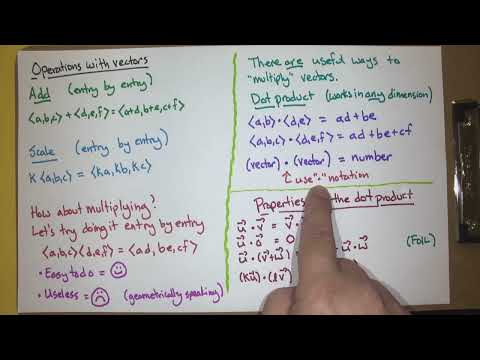 Operations with vectors
Add (entry by entry)
<a,b,c> + <d,e,f> = <a+d, b+e, c+f>
Scale (entry by entry)
K<a,b,c> = <Ka, Kb, Kc>
How about multiplying?
Let's try doing it entry by entry
<a,b,c><d,e,f> = <ad, be, cf>
• Easy to do = ☺
• Useless = ☹ (geometrically speaking)
There are useful ways to
"multiply" vectors.
Dot product (works in any dimension)
<a,b> • <d,e> = ad + be
<a,b,c> • <d,e,f> = ad + be + cf
(vector) • (vector) = number
↑ use "•" notation
Properties the dot product
u⃗ • v⃗ = v⃗
u⃗ • 0⃗ = 0
u⃗ • (v⃗ + w⃗) u⃗ • w⃗ (FOIL)
(Ku⃗) • (lv⃗)